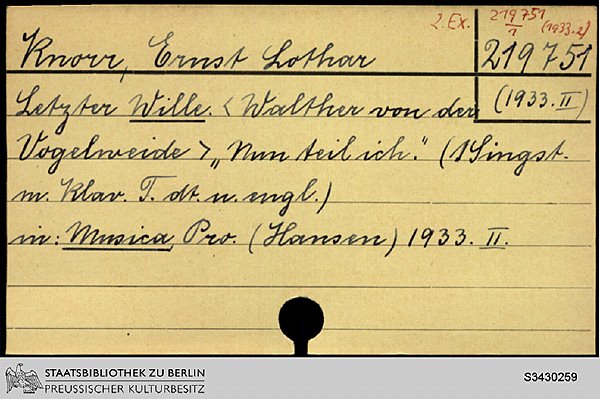 2. Ex.
219751
1
(1933.2)
Knorr, Ernst Lothar
219751
Letzter Wille. < Walther von der
(1933. II)
Vogelweide > „Nun teil ich." (1 Singst.
m. Klav. T. dt. u. engl.)
in: Musica Pro. (Hansen) 1933. II.
STAATSBIBLIOTHEK ZU BERLIN
PREUSSISCHER KULTURBESITZ
S3430259